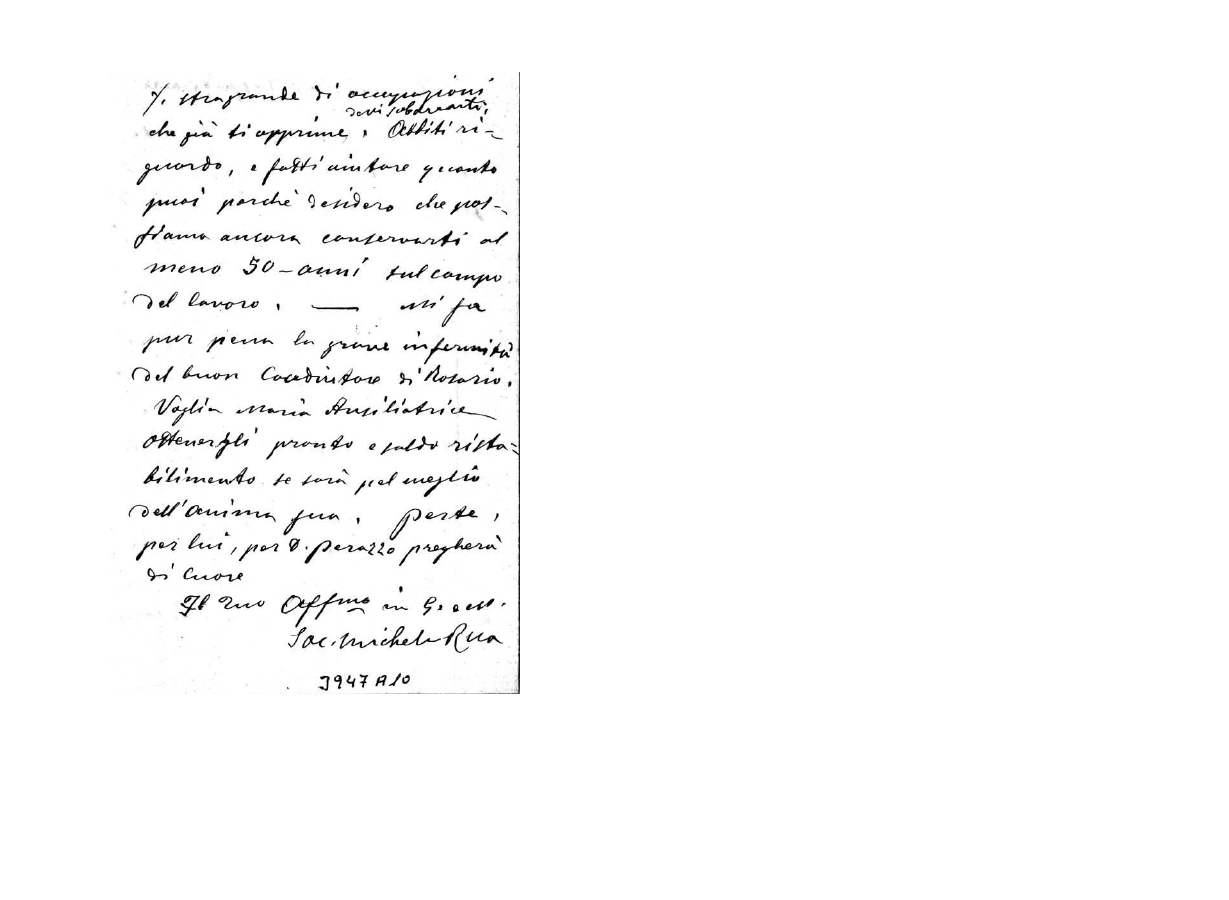 %. stragrande di occupazioni
devi sobbarcarti,
che già ti opprime. Abbiti ri-
guardo, e fatti aiutare quanto
puoi perchè desidero che pos-
siamo ancora conservarti al
meno 50-anni sul campo
del lavoro. — Mi fa
pur pena la grave infermità
del buon Coadiutore di Rosario.
Voglia Maria Ausiliatrice
ottenergli pronto e saldo rista=
bilimento se sarà pel meglio
dell'anima sua. Per te,
per lui, per D. Perazzo pregherà
di cuore
Il tuo Affmo in G. e M.
Sac. Michele Rua
3947 A10